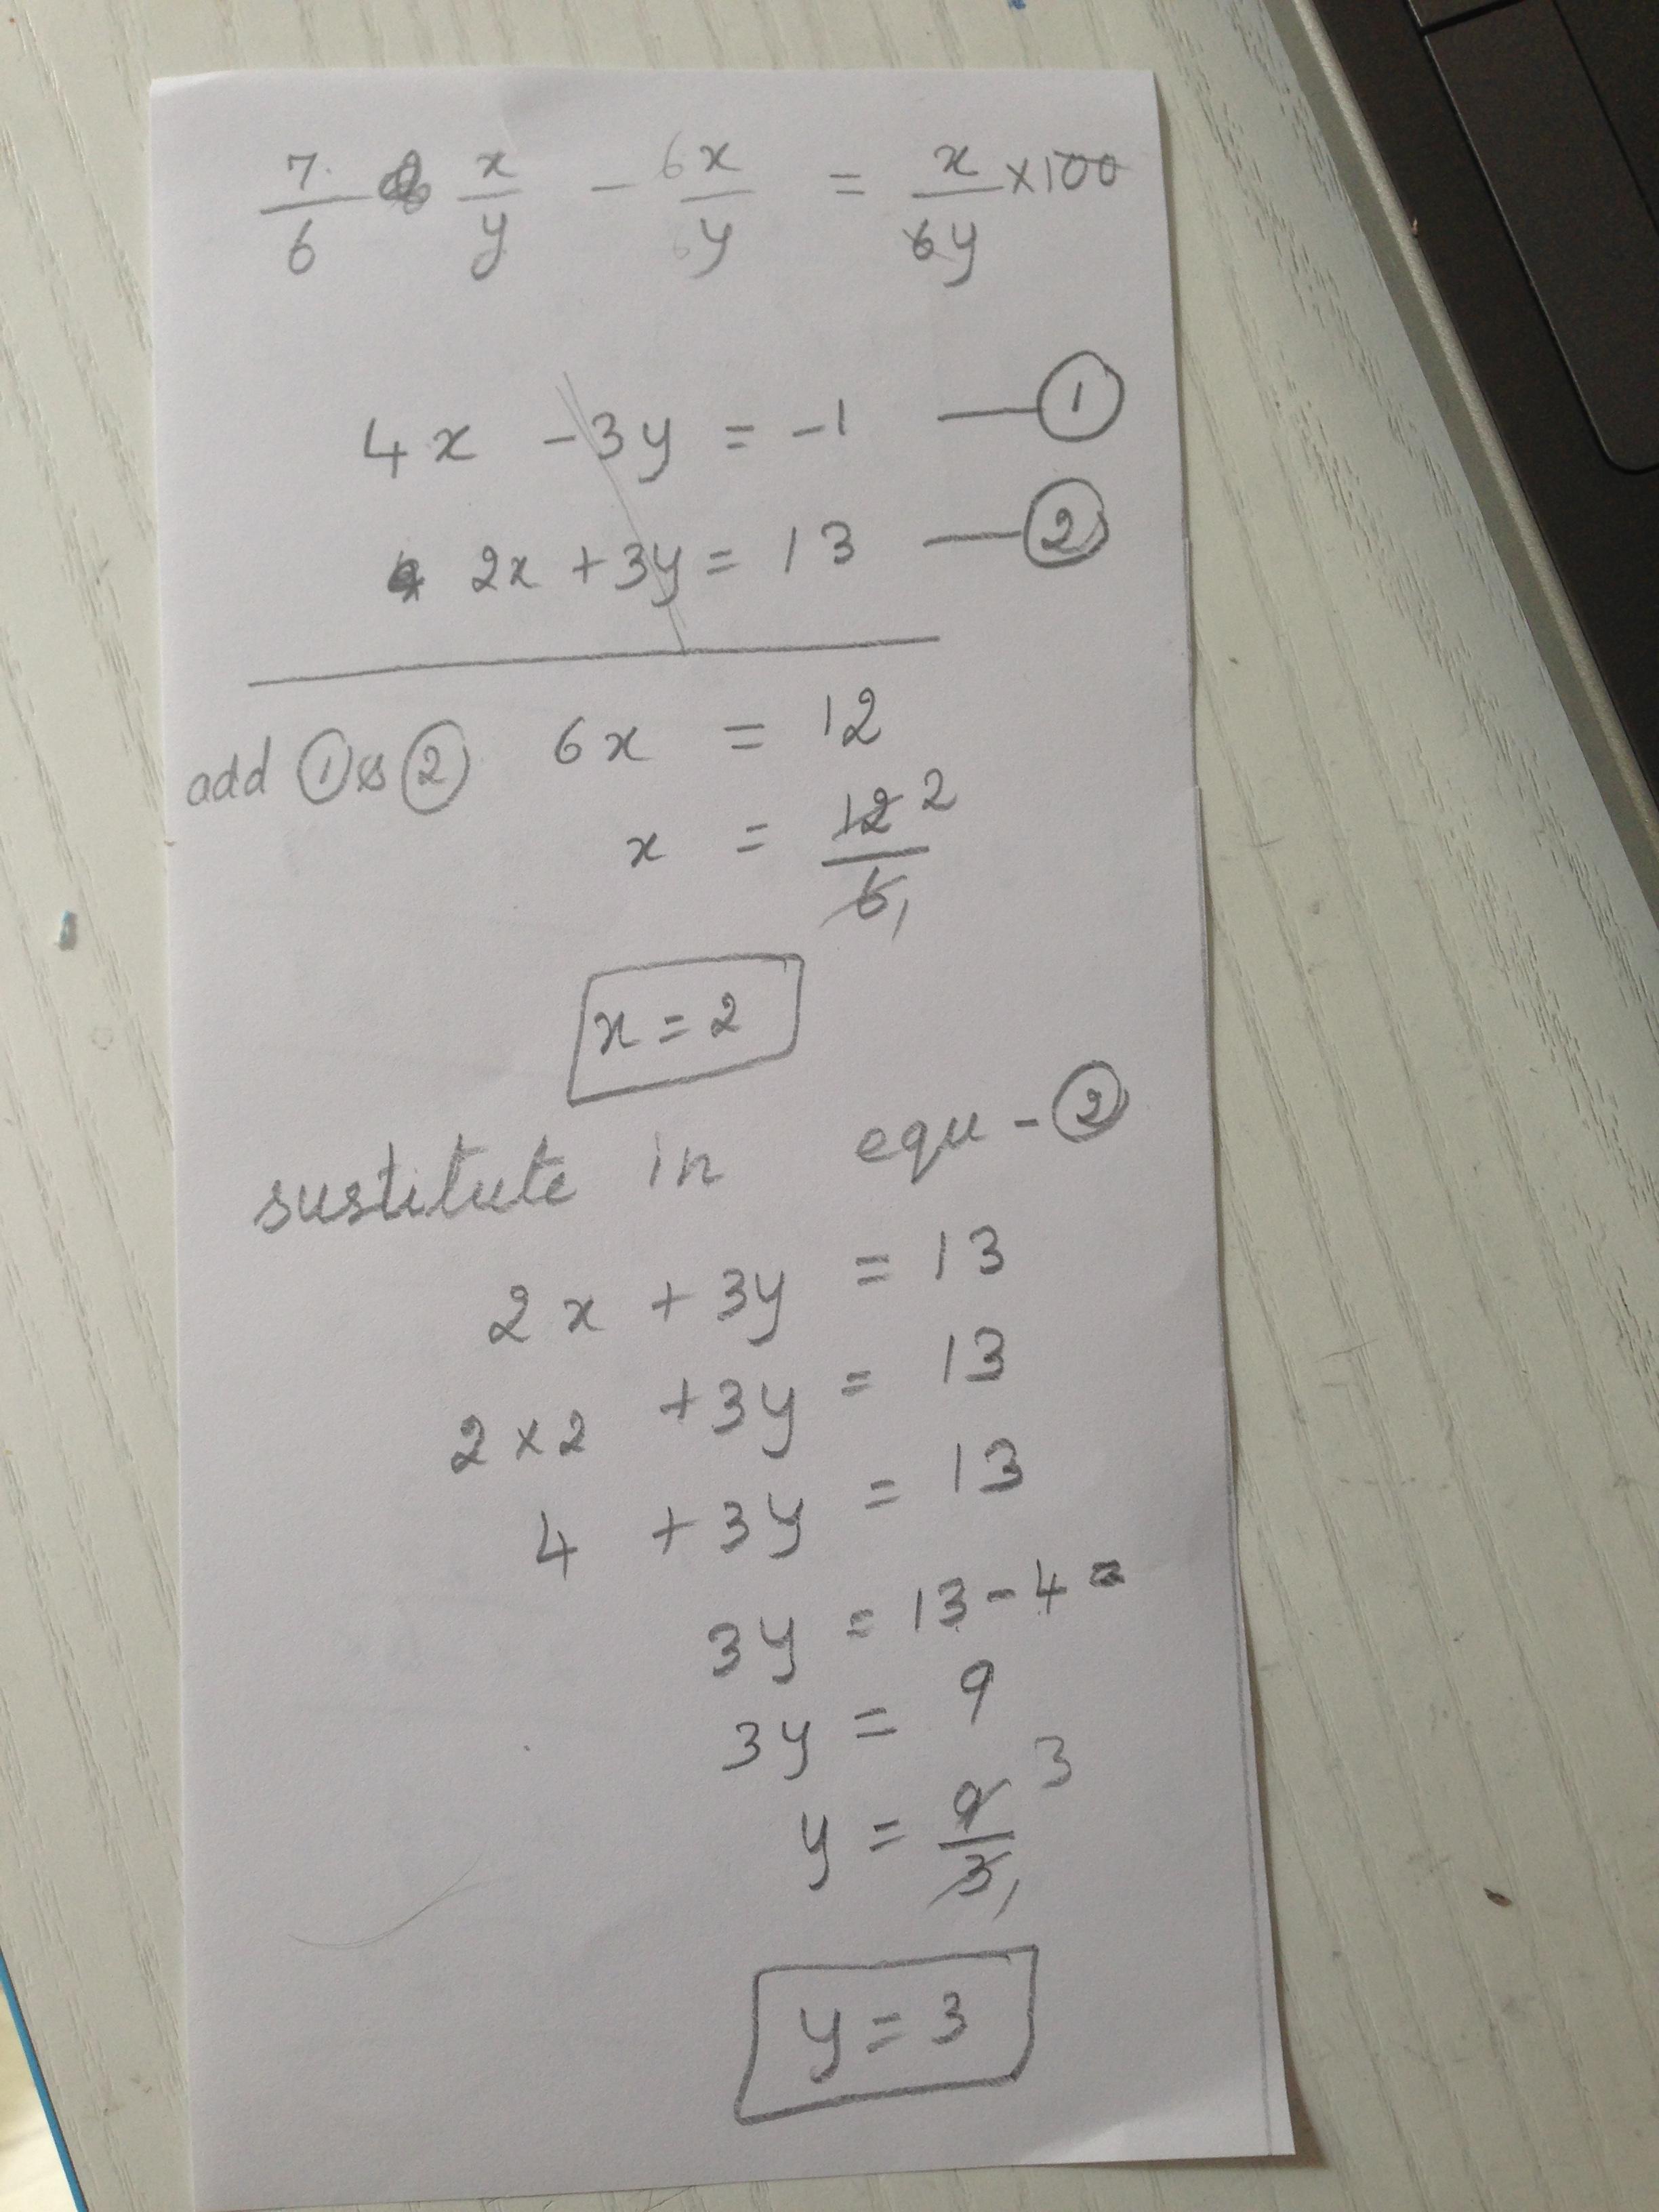 7/6 x/y - 6x/6y = x/6y × 100
4x - 3y = -1 — ①
2x + 3y = 13 — ②
add ① & ② 6x = 12
x = 12/6 2 1
x = 2
sustitute in equ - ②
2x + 3y = 13
2 × 2 + 3y = 13
4 + 3y = 13
3y = 13 - 4 =
3y = 9
y = 9/3 3 1
y = 3